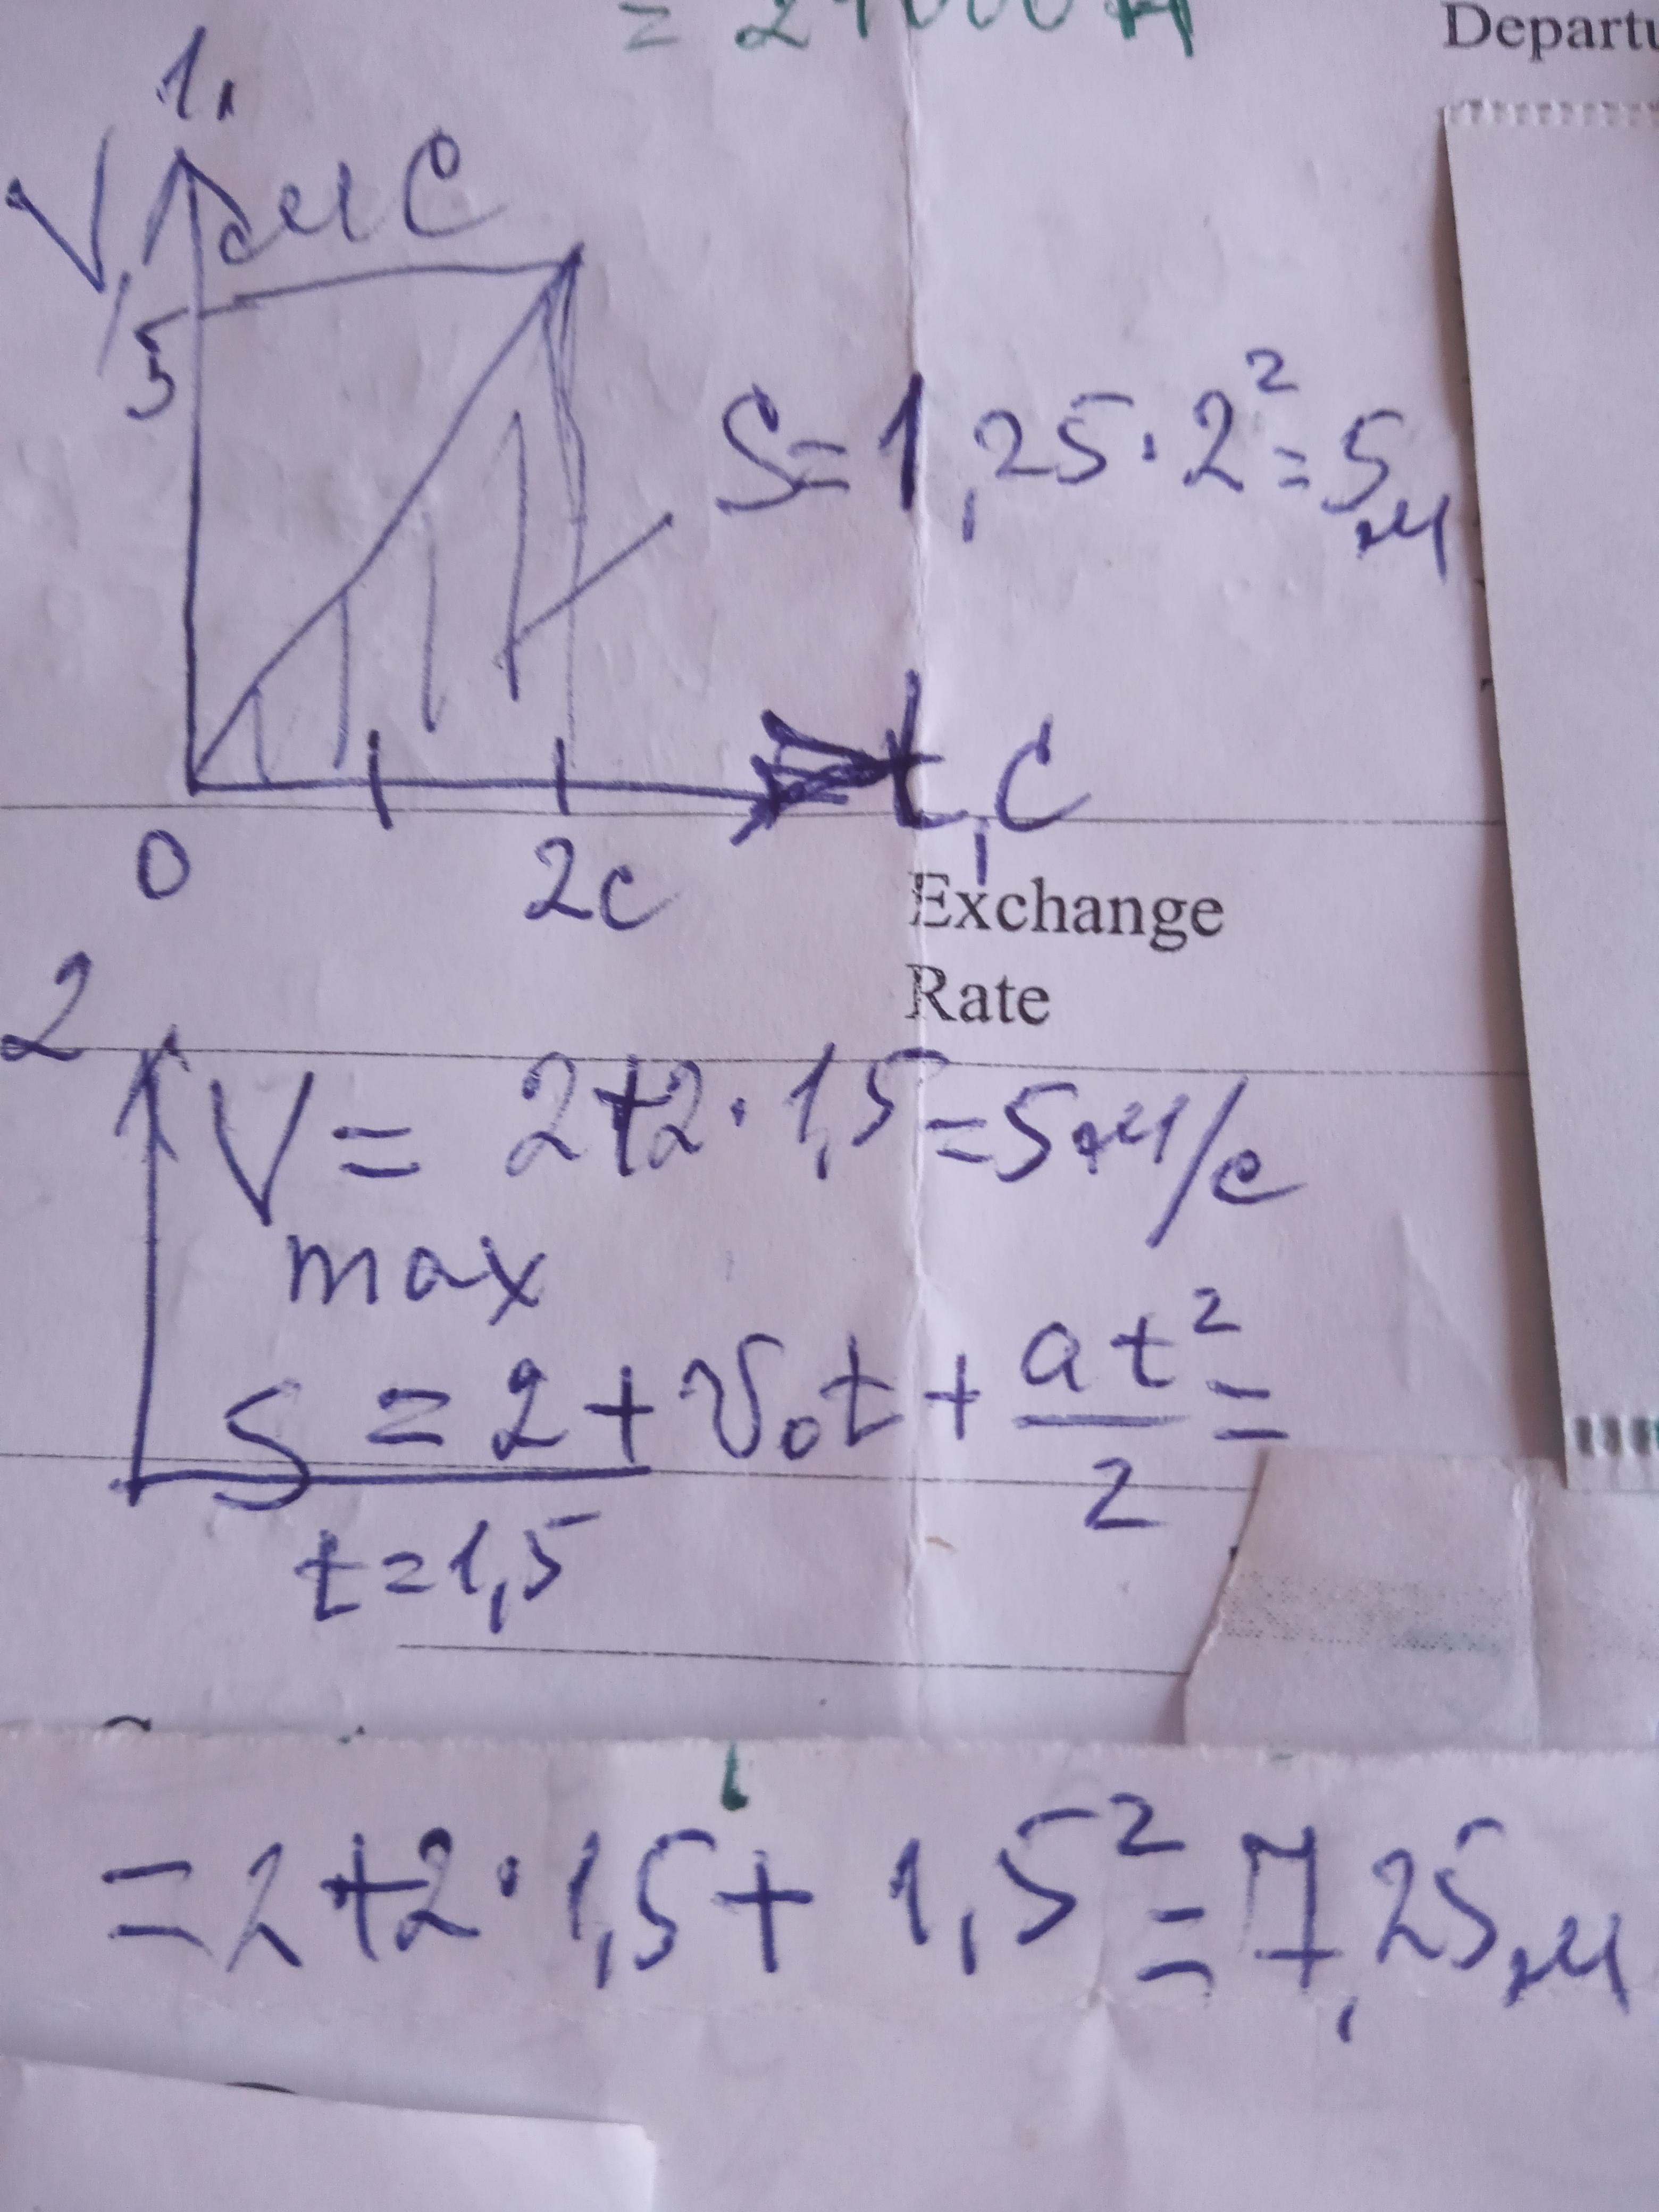 Departu
1.
V, м с
5
S = 1,25 · 2² = 5 м
t, с
0
2с
Exchange
Rate
2
V = 2+2 · 1,5 = 5 м/с
max
S = 2 + v₀t + at²/2 =
t = 1,5
= 2+2 · 1,5 + 1,5² = 7,25 м